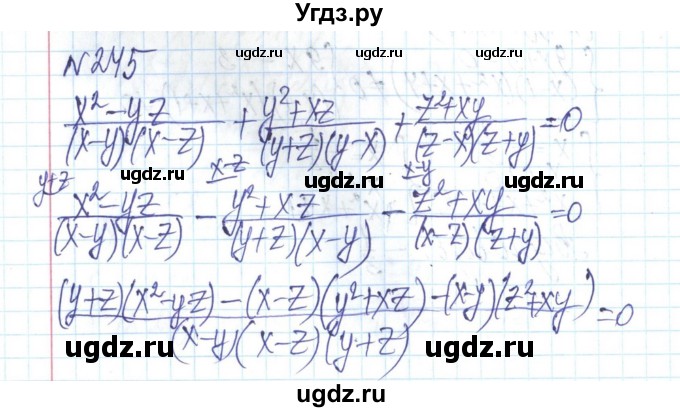 Угдз.ру
ugdz.ru ugdz.ru
№245
(x²-yz)/((x-y)(x-z)) + (y²+xz)/((y+z)(y-x)) + (z²+xy)/((z-x)(z+y)) = 0
ugdz.ru ugdz.ru
y+z x-z x-y
(x²-yz)/((x-y)(x-z)) - (y²+xz)/((y+z)(x-y)) - (z²+xy)/((x-z)(z+y)) = 0
ugdz.ru ugdz.ru
((y+z)(x²-yz)-(x-z)(y²+xz)-(x-y)(z²+xy))/((x-y)(x-z)(y+z)) = 0
ugdz.ru ugdz.ru
ugdz.ru